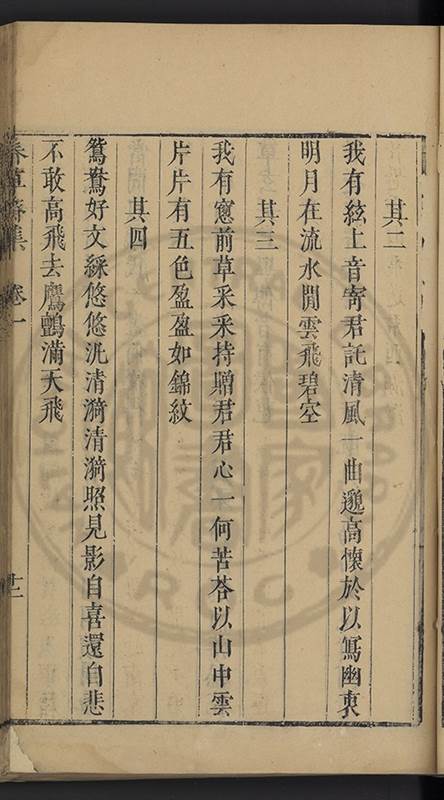 其二
我有絃上音寄君託清風一曲邈高懷於以寫幽衷
明月在流水閒雲飛碧空
其三
我有窻前草采采持贈君君心一何苦荅以山中雲
片片有五色盈盈如錦紋
其四
鴛鴦好文綵悠悠汎清漪清漪照見影自喜還自悲
不敢高飛去鷹鸇滿天飛
春草齋集 卷一
十二